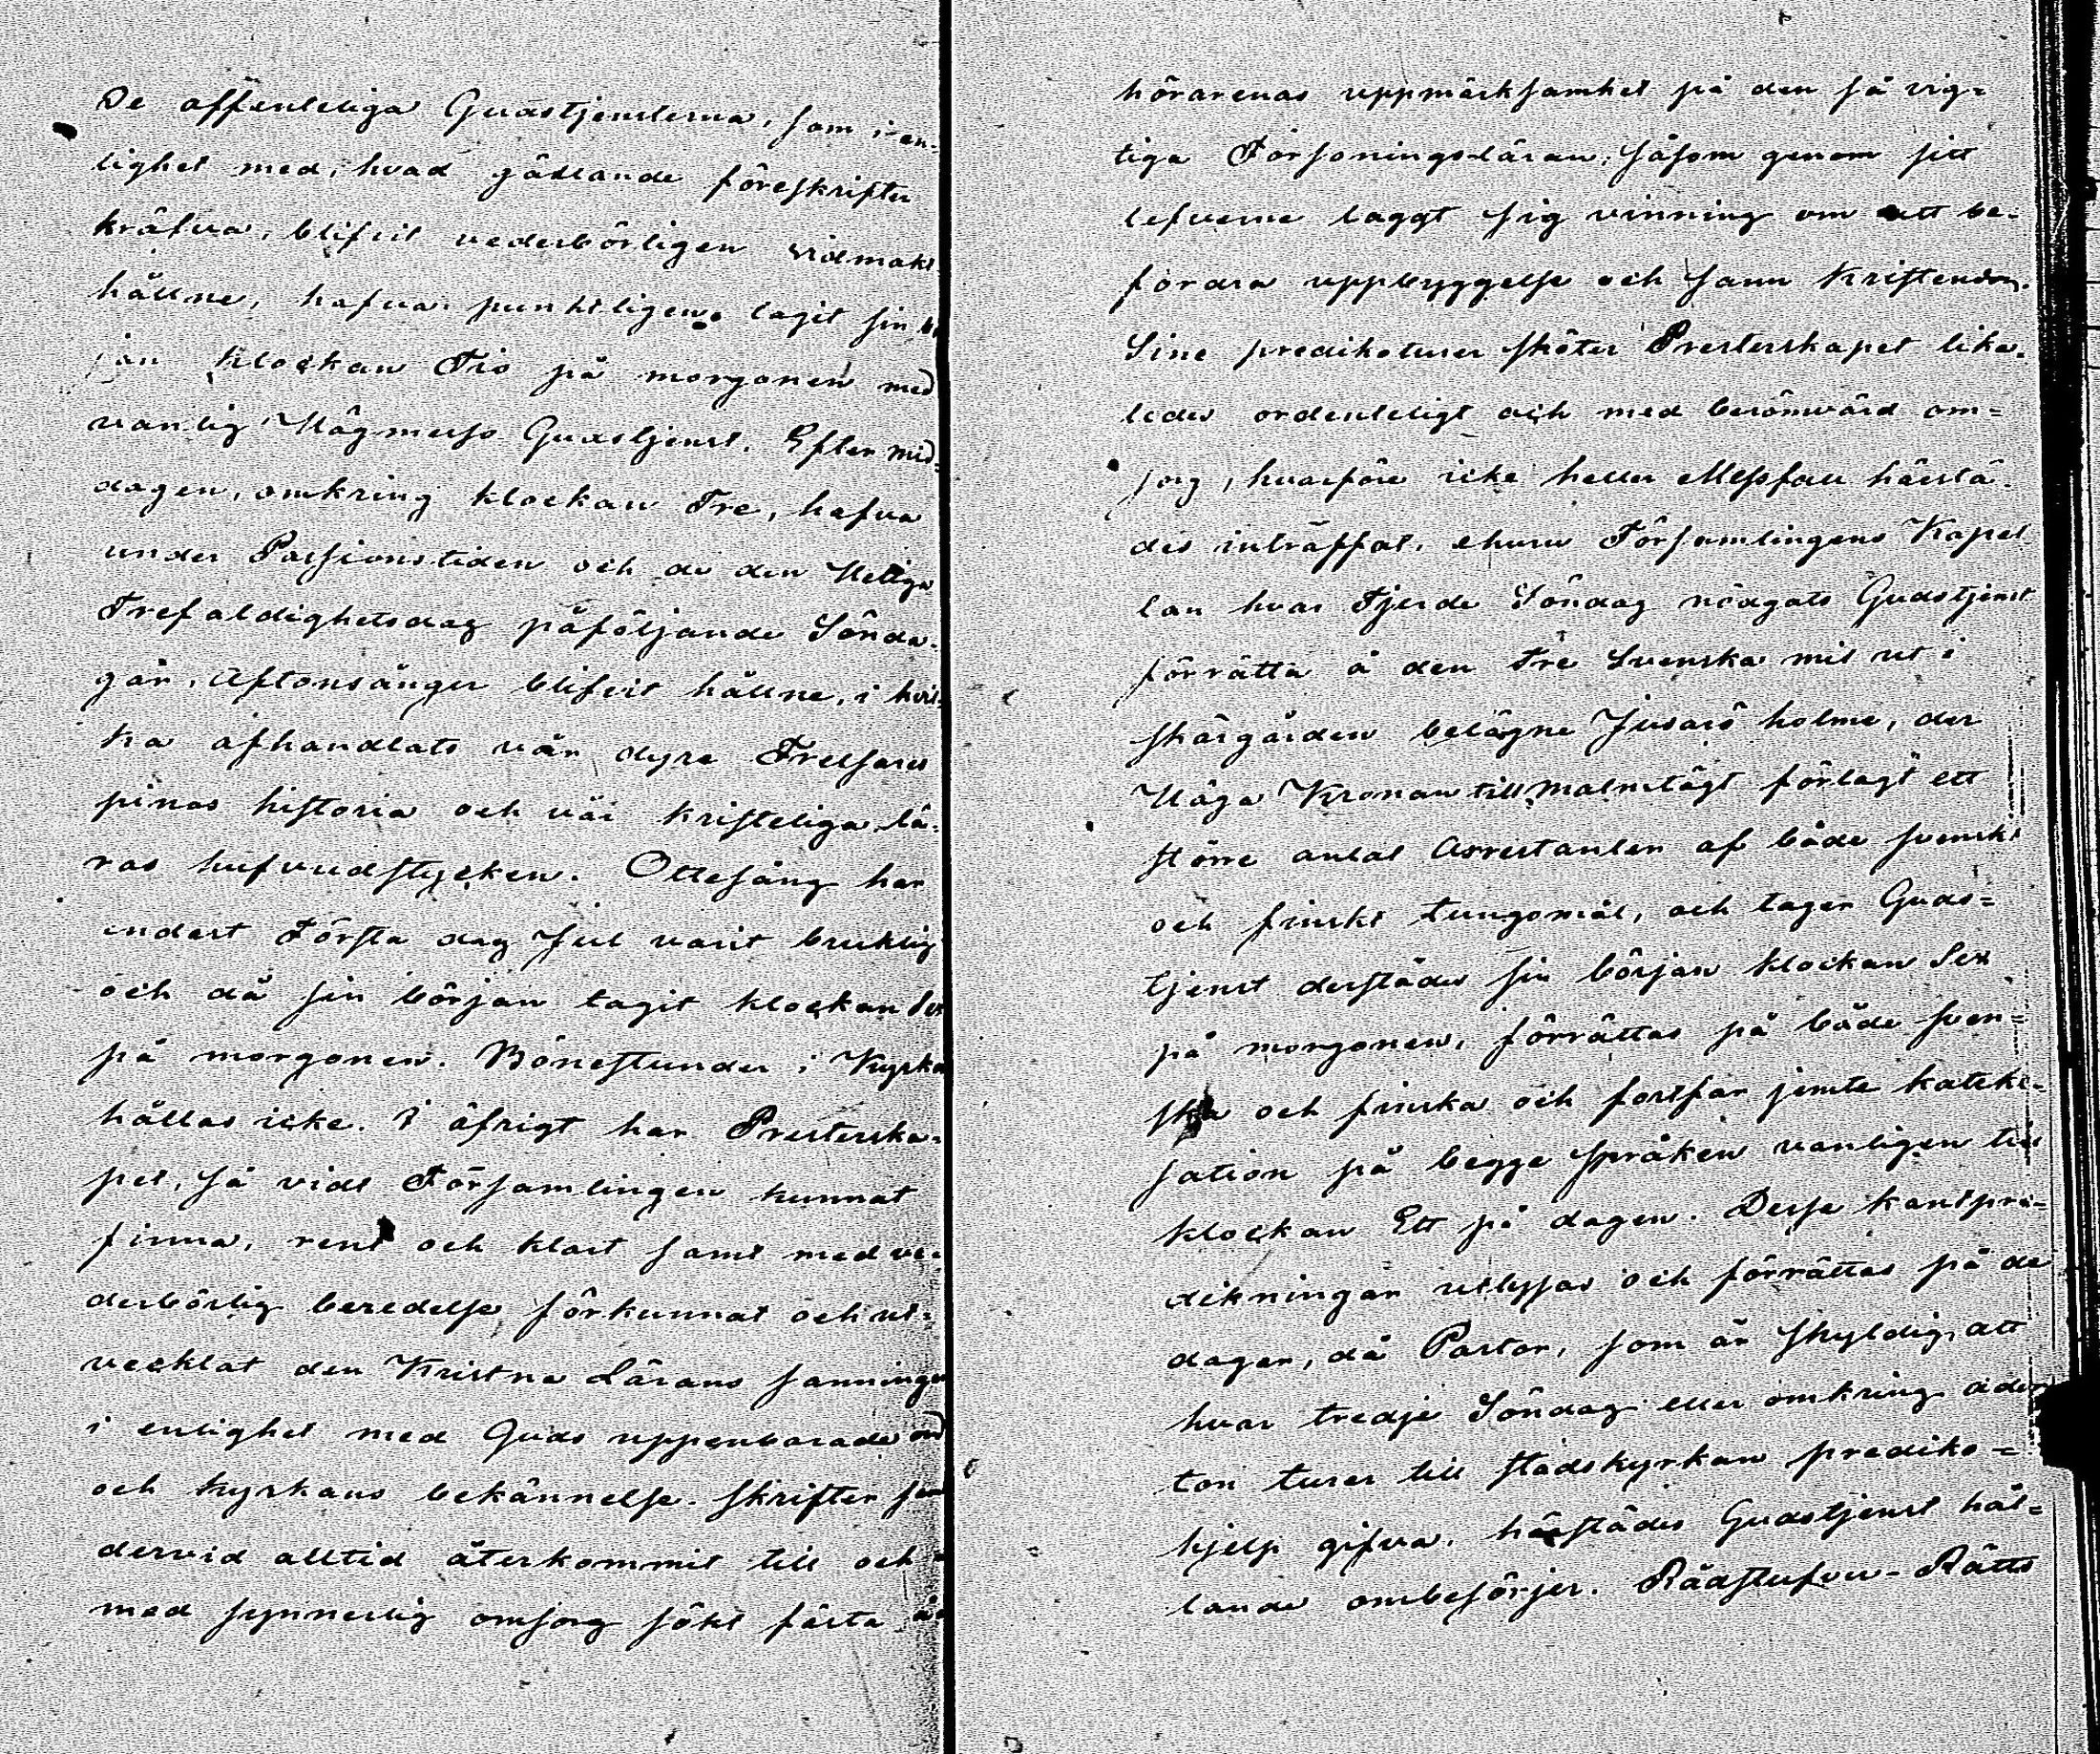 De offenteliga Gudstjensterna, som i en-
lighet med, hvad gällande föreskrifter
kräfva, blifvit vederbörligen vidmakt-
hållne, hafva punktligen tagit sin b
jan klockan Tio på morgonen med
vanlig Högmesso Gudstjenst. Efter mid-
dagen, omkring klockan Tre, hafva
under Passionstiden och de den Heliga
Trefaldighetsdag påföljande Sönda-
gar, Aftonsånger blifvit hållne, i hvil-
ka afhandlats vår dyre Frelsares
pinas historia och vår kristeliga lä-
ras hufvudstycken. Ottesång har
endast Första dag Jul varit bruklig
och då sin början tagit klockan Sex
på morgonen. Bönestunder i Kyrka
hållas icke. I öfrigt har Presterska-
pet, så vidt Församlingen kunnat
finna, rent och klart samt med ve-
derbörlig beredelse förkunnat och ut-
vecklat den Kristna Lärans sanningar
i enlighet med Guds uppenbarade ord
och kyrkans bekännelse-skrifter samt
dervid alltid återkommit till och
med synnerlig omsorg sökt fästa å
hörarenas uppmärksamhet på den så vig-
tiga Försonings-läran, såsom genom sitt
lefverne laggt sig vinning om att be-
fordra uppbyggelse och sann Kristendom.
Sine predikoturer sköter Presterskapet lika-
ledes ordenteligt och med berömvärd om-
sorg, hvarföre icke heller Messfall härstä-
des inträffat, ehuru Församlingens Kapel-
lan hvar Fjerde Söndag nödgats Gudstjenst
förrätta å den Tre Svenska mil ut i
skärgården belägne Jusarö holme, der
Höga Kronan till Malmtägt förlagt ett
större antal Arrestanter af både svenskt
och finskt tungomål, och tager Guds-
tjenst derstädes sin början klockan Sex
på morgonen, förrättas på både sven-
ska och finska och fortfar jemte kateke-
sation på begge språken vanligen till
klockan Ett på dagen. Desse kantpre-
dikningar utlysas och förrättas på de
dagar, då Pastor, som är skyldig att
hvar tredje Söndag eller omkring ader
ton turer till stadskyrkan prediko-
hjelp gifva, härstädes Gudstjenst hål-
lande ombesörjer. Rådstufvu-Rätts